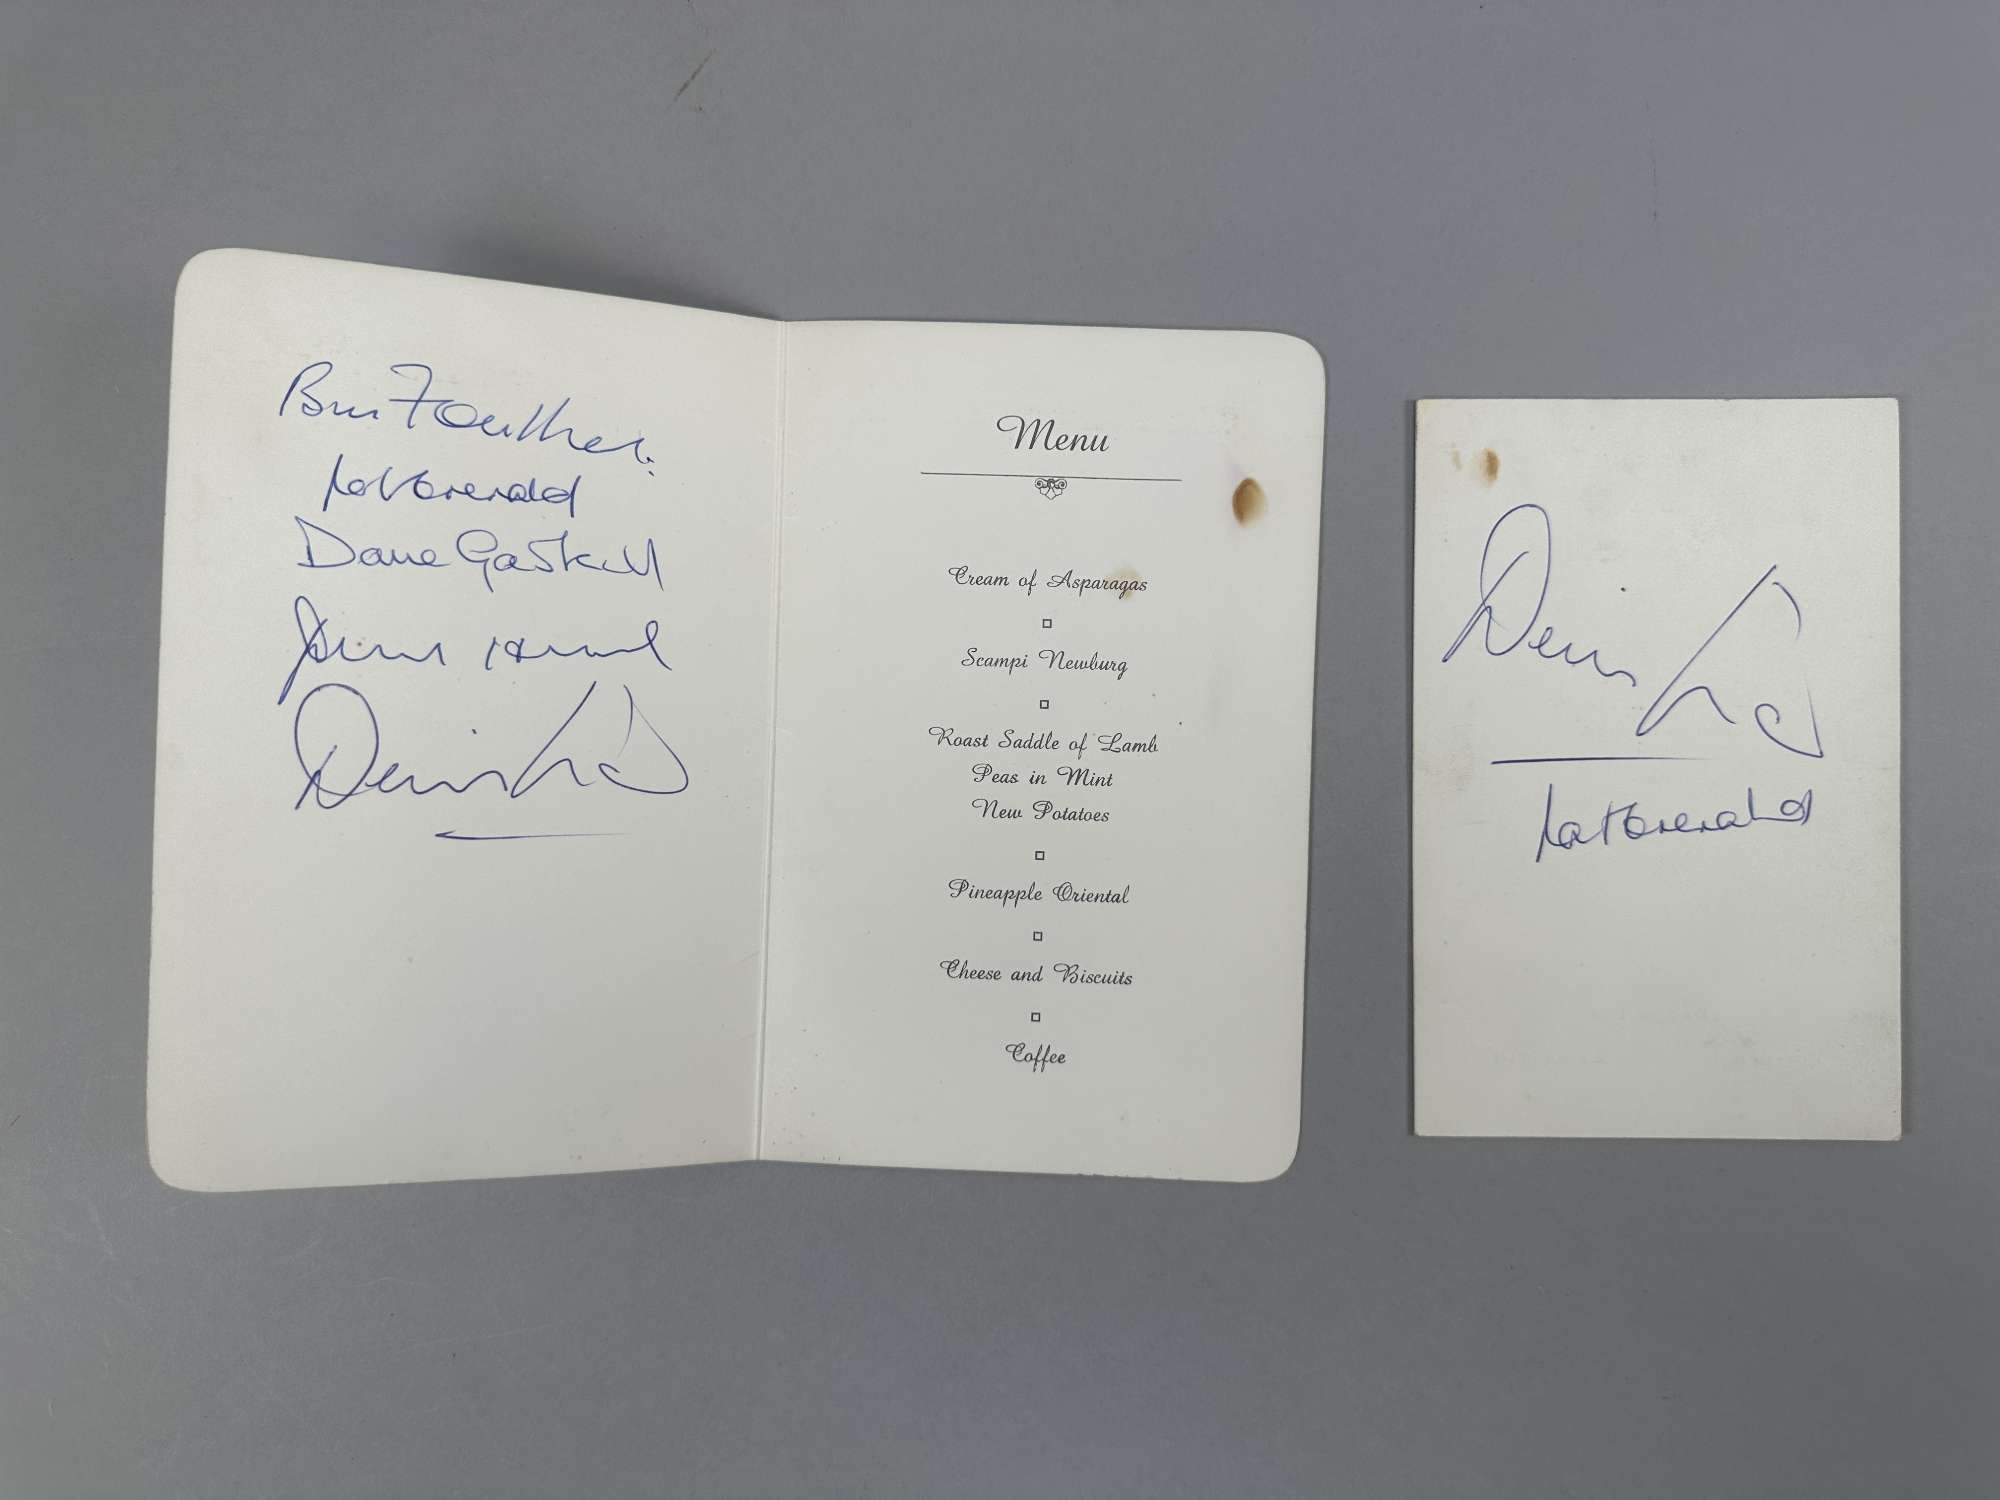 Bill Foulkes
Pat Crerand
Dave Gaskell
Denis Law
Menu
Cream of Asparagas
Scampi Newburg
Roast Saddle of Lamb
Peas in Mint
New Potatoes
Pineapple Oriental
Cheese and Biscuits
Coffee
Denis Law
Pat Crerand